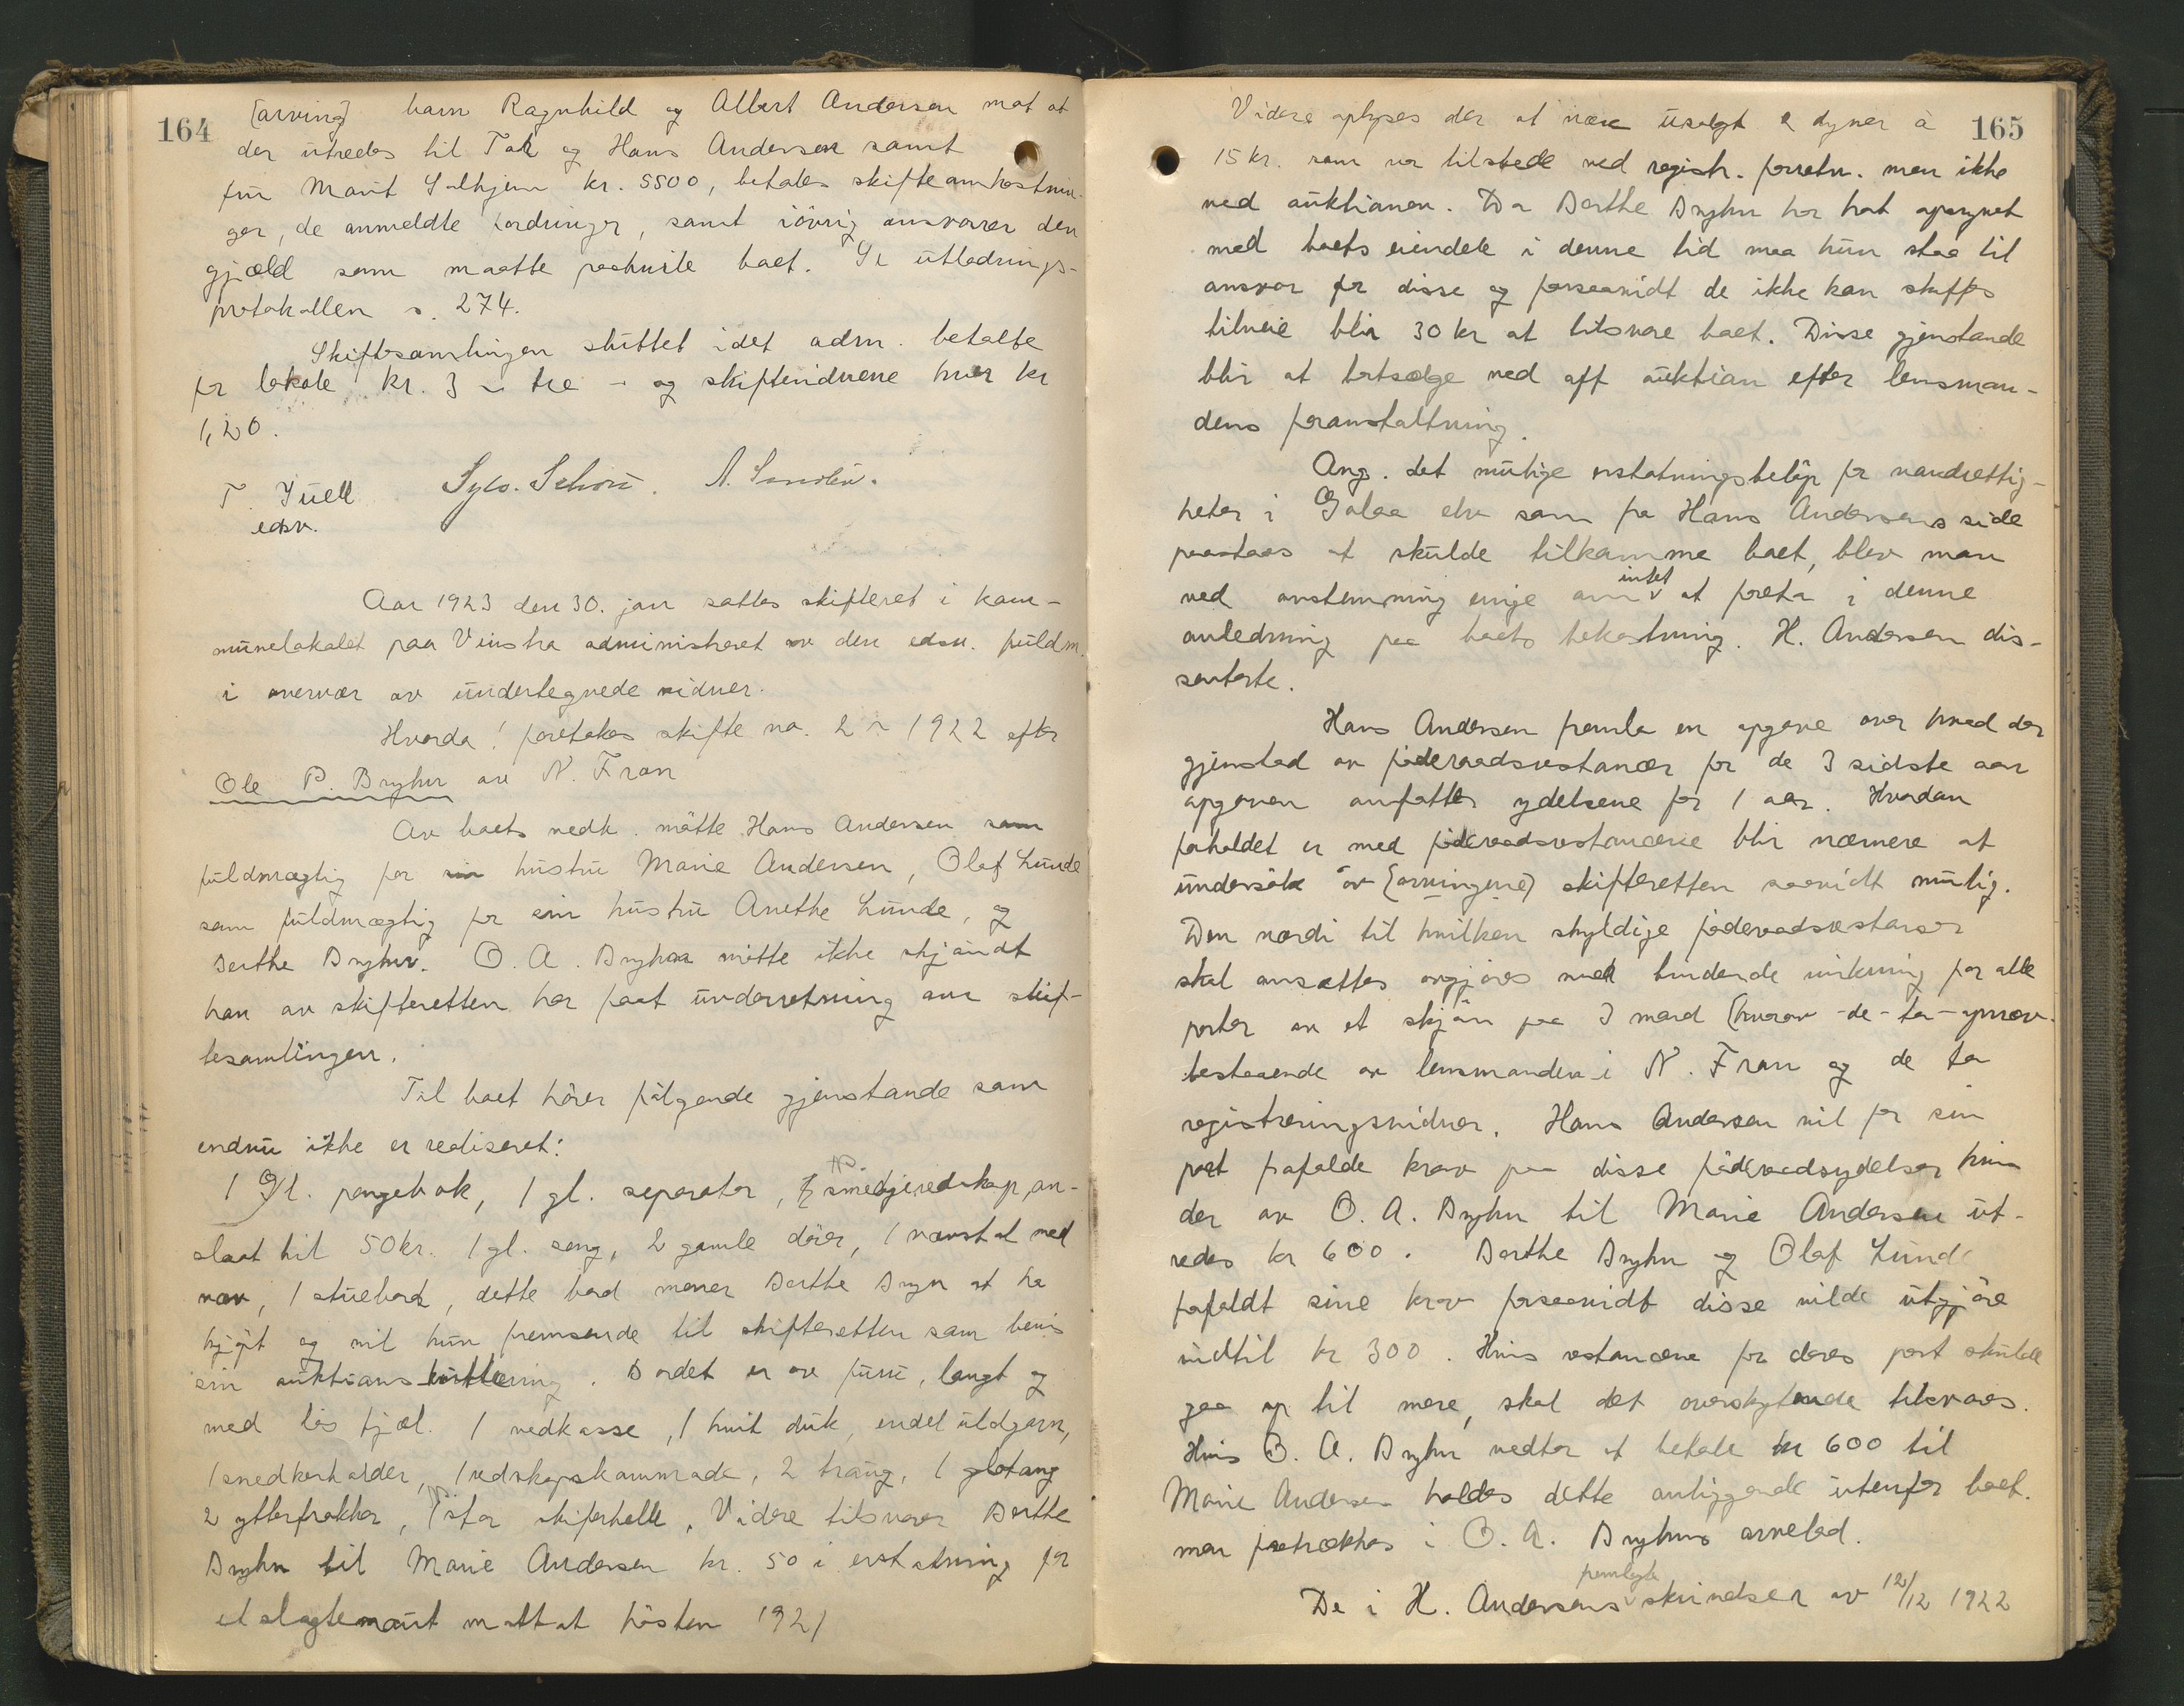 164
[arving] barn Ragnhild og Albert Andersen mot at
der utredes til Tok og Hans Andersen samt
fru Marit Solhjem kr. 5500, betales skifteomkostnin-
ger, de anmeldte fordringer, samt iövrig ansvarer den
gjæld som maatte paahvile boet. Se utlodnings-
protokollen s. 274.
Skiftesamlingen sluttet idet adm. betalte
for lokale kr. 3 - tre - og skiftevidnene hver kr
1,20.
T. Juell Sylv. Schou. A.
edsv.
Aar 1923 den 30. jan sattes skifteret i kom-
munelokalet paa Vinstra administreret av den edsv. fuldm.
i overvær av undertegnede vidner.
Hvorda! foretokes skifte no. 2 - 1922 efter
Ole P. Bryhn av N. Fron
Av boets vedk. mötte Hans Andersen som
fuldmægtig for sin hustru Marie Andersen, Olaf Lunde
som fuldmægtig for sin hustru Anethe Lunde, og
Berthe Bryhn. O. A. Bryhn mötte ikke skjöndt
han av skifteretten har faat underretning om skif-
tesamlingen.
Til boet hörer fölgende gjenstande som
endnu ikke er realiseret:
1 Gl. pengebok, 1 gl. separator, smedjeredskap, an-
slaat til 50 kr. 1 gl. seng, 2 gamle dörer, 1 vævstol med
væv, 1 stuebord, dette bord mener Berthe Bryn at ha
kjöpt og vil hun fremsende til skifteretten som bevis
sin auktionskvittering. Bordet er av furu, langt og
med lös fjæl. 1 vedkasse, 1 hvit duk, endel uldgarn,
1 snedkerhalder, 1 redskapskammrade, 2 traug, 1 glotang
2 ytterfrakker, 1 stor skiferhelle. Videre tilsvarer Berthe
Bryhn til Marie Andersen kr. 50 i erstatning for
et slagtenaut mottat hösten 1921
165
Videre oplyses der at være usolgt 2 dyner à
15 kr. som var tilstede ved registr. forretn. men ikke
ved auktionen. Da Berthe Bryhn har hat opsynet
med boets eiendele i denne tid maa hun staa til
ansvar for disse og forsaavidt de ikke kan skaffes
tilveie blir 30 kr at tilsvare boet. Disse gjenstande
blir at bortsælge ved off auktion efter lensman-
dens foranstaltning.
Ang. det mulige erstatningsbelöp for vandrettig-
heter i Golaa elv som fra Hans Andersens side
paastaaes at skulde tilkomme boet, blev man
intet
ved avstemning enige om at foreta i denne
anledning paa boets bekostning. H. Andersen dis-
senterte.
Hans Andersen fremla en opgave over hvad der
gjenstod av föderaadsrestancer for de 3 sidste aar
opgaven omfatter ydelsene for 1 aar. Hvordan
forholdet er med föderaadsrestancene blir nærmere at
undersöke av (arvingene) skifteretten saavidt mulig.
Den verdi til hvilken skyldige föderaadsrestanser
skal ansættes avgjöres med bindende virkning for alle
parter av et skjön paa 3 mænd (hvorav - de - to - opnæv.
bestaaende av lensmanden i N. Fron og de to
registreringsvidner. Hans Andersen vil for sin
part frafalde krav paa disse föderaadsydelser hvis
der av O. A. Bryhn til Marie Andersen ut-
redes kr 600. Berthe Bryhn og Olaf Lunde
frafaldt sine krav forsaavidt disse vilde utgjöre
indtil kr 300. Hvis restancene for deres part skulde
gaa op til mere, skal det overskytende tilsvares.
Hvis O. A. Bryhn vedtar at betale kr 600 til
Marie Andersen holdes dette anliggende utenfor boet.
men fratrækkes i O. A. Bryhns arvelod.
fremlagte
De i H. Andersens skrivelser av 12/12 1922